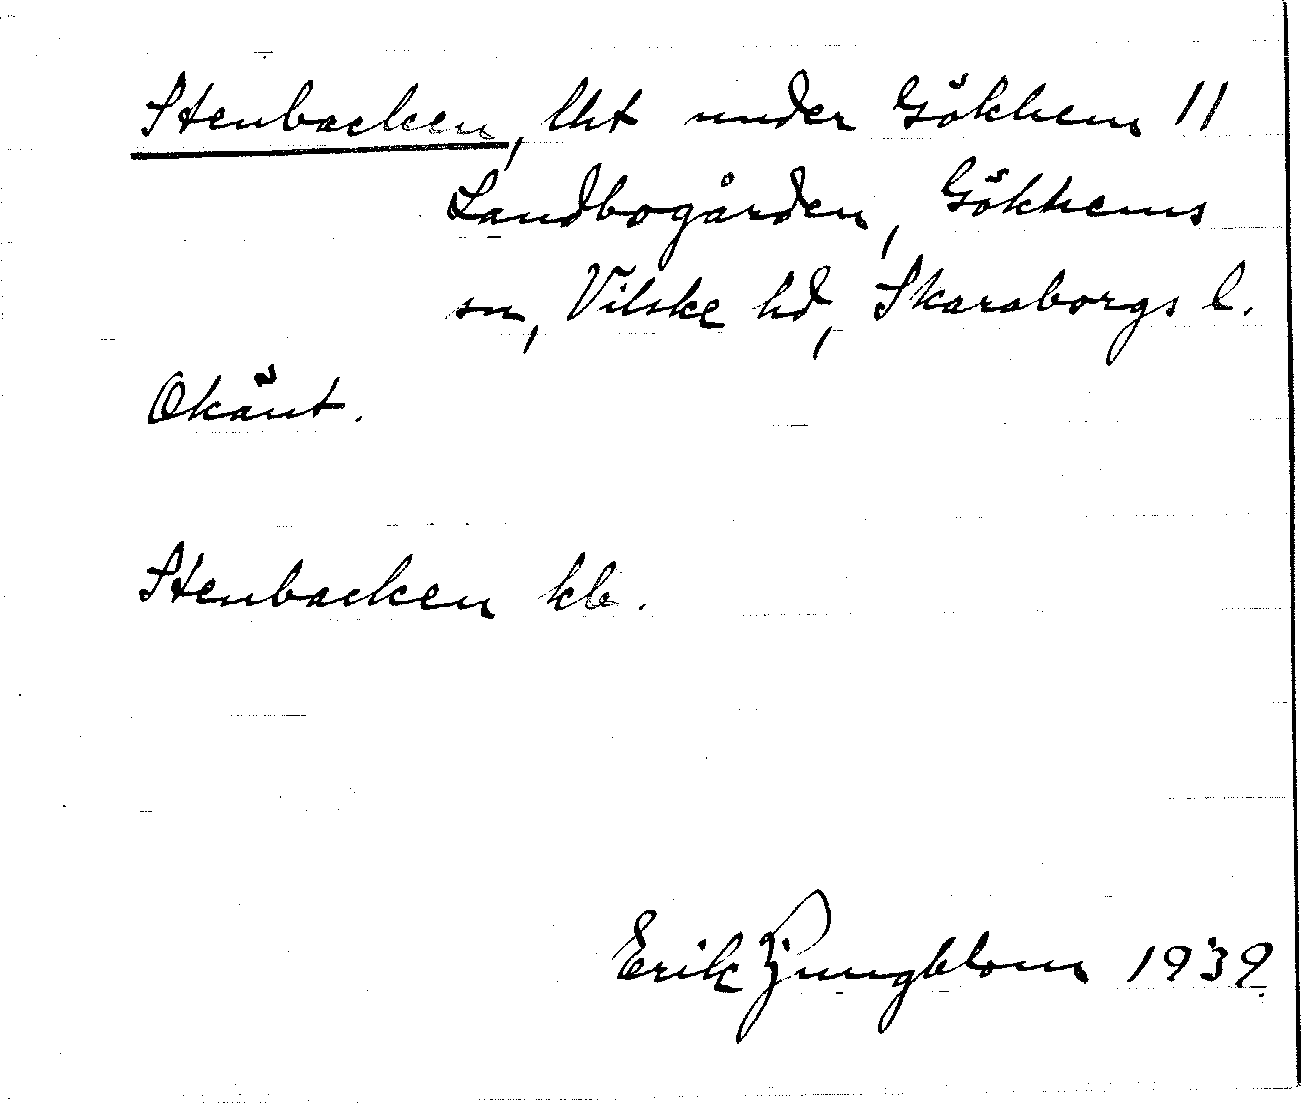 Stenbacken, lht under Gökhem 11
Landbogården, Gökhems
sn, Vilske hd, Skaraborgs l.
Okänt.
Stenbacken kb.
Erik Ljungblom 1939.